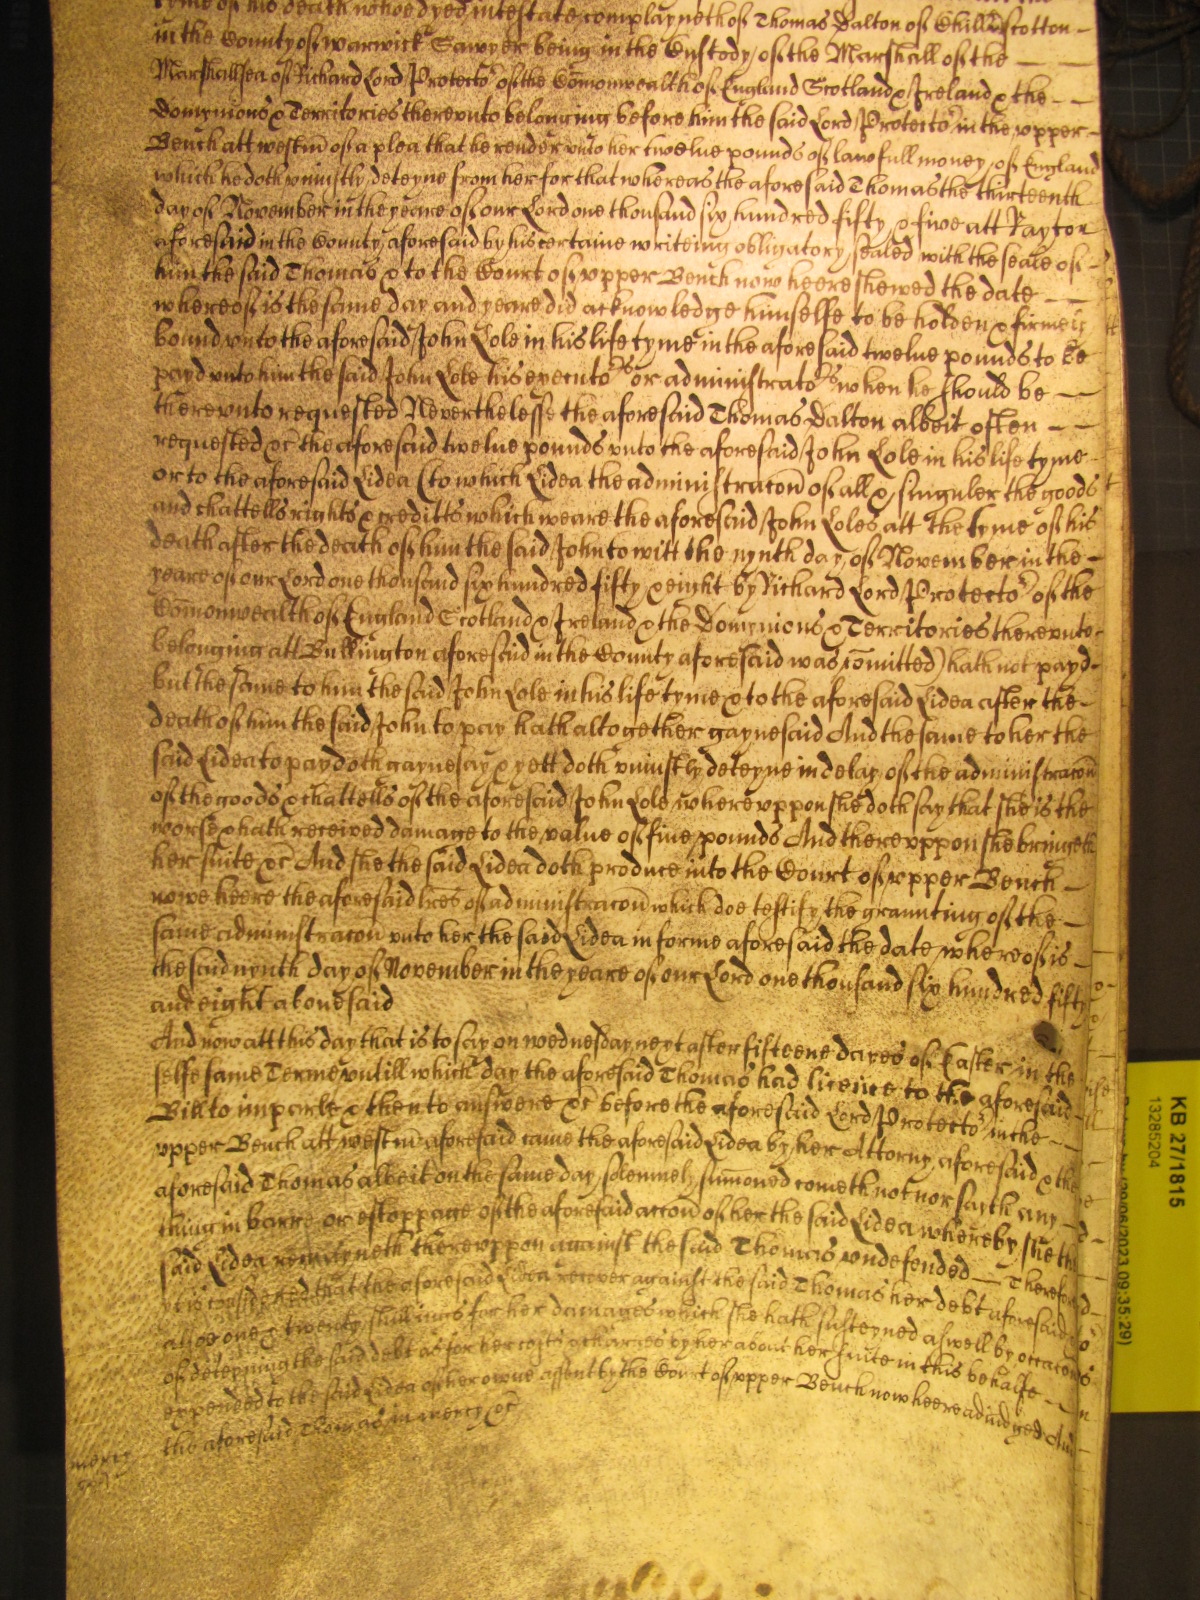 tyme of his death who dyed intestate complayneth of Thomas Dalton of Chillscotton
in the County of Warwick Sawyer being in the Custody of the Marshall of the
Marshallsea of Richard Lord Protector of the Com̃onwealth of England Scotland & Ireland & the
Domynions & Territories therevnto belonging before him the said Lord Protector in the vpper
Bench att westm̃ of a plea that he render vnto her twelue pounds of lawfull money of England
which he doth vniustly deteyne from her for that whereas the aforesaid Thomas the thirteenth
day of November in the yeare of our Lord one thousand six hundred fifty & five att Rayton
aforesaid in the County aforesaid by his certaine writeing obligatory sealed with the seale of
him the said Thomas & to the Court of vpper Bench now heere shewed the date
whereof is the same day and yeare did acknowledge himselfe to be holden & firmely
bound vnto the aforesaid John Cole in his life tyme in the aforesaid twelue pounds to be
payd vnto him the said John Cole his executors or administrators when he should be
therevnto requested Neverthelesse the aforesaid Thomas Dalton albeit often
requested &c the aforesaid twelue pounds vnto the aforesaid John Cole in his life tyme
or to the aforesaid Lidea (to which Lidea the administracõn of all & singuler the goods
and chattells rights & creditts which weare the aforesaid John Coles att the tyme of his
death after the death of him the said John to witt the nynth day of November in the
yeare of our Lord one thousand six hundred fifty & eight by Richard Lord Protector of the
Com̃onwealth of England Scotland & Ireland & the Domynions & Territories therevnto
belonging att Bulkington aforesaid in the County aforesaid was com̃itted) hath not payd
but the same to him the said John Cole in his life tyme & to the aforesaid Lidea after the
death of him the said John to pay hath altogether gaynesaid And the same to her the
said Lidea to pay doth gaynesay & yett doth vniustly deteyne in delay of the administracõn
of the goods & chattells of the aforesaid John Cole wherevppon she doth say that she is the
worse & hath received damage to the value of fiue pounds And therevppon she bringeth
her suite &c And she the said Lidea doth produce into the Court of vpper Bench
nowe heere the aforesaid lr̃es of administracõn which doe testify the graunting of the
same administracõn vnto her the said Lidea in forme aforesaid the date whereof is
the said nynth day of November in the yeare of our Lord one thousand six hundred fifty
and eight abouesaid
And now att this day that is to say on wednesday next after fifteene dayes of Easter in the
selfe same Terme vntill which day the aforesaid Thomas had licence to the aforesaid
Bill to imparle & then to answere &c before the aforesaid Lord Protector in the
vpper Bench att westm̃ aforesaid came the aforesaid Lidea by her Attorny aforesaid & the
aforesaid Thomas albeit on the same day solemnely sum̃oned cometh not nor sayth any
thing in barre or estoppage of the aforesaid accõn of her the said Lidea whereby she the
said Lidea remayneth therevppon against the said Thomas vndefended Therefore
yt is considered that the aforesaid Lidea recover against the said Thomas her debt aforesaid &
alsoe one & twenty shillings for her damages which she hath susteyned aswell by occacõn
of deteyning the said debt as for her costs & charges by her about her suite in this behalfe
expended to the said Lidea of her owne assent by the Court of vpper Bench now heere adiudged And
the aforesaid Thomas in mercy &c
mercy
KB 27/1815
13285204
09:35:29)